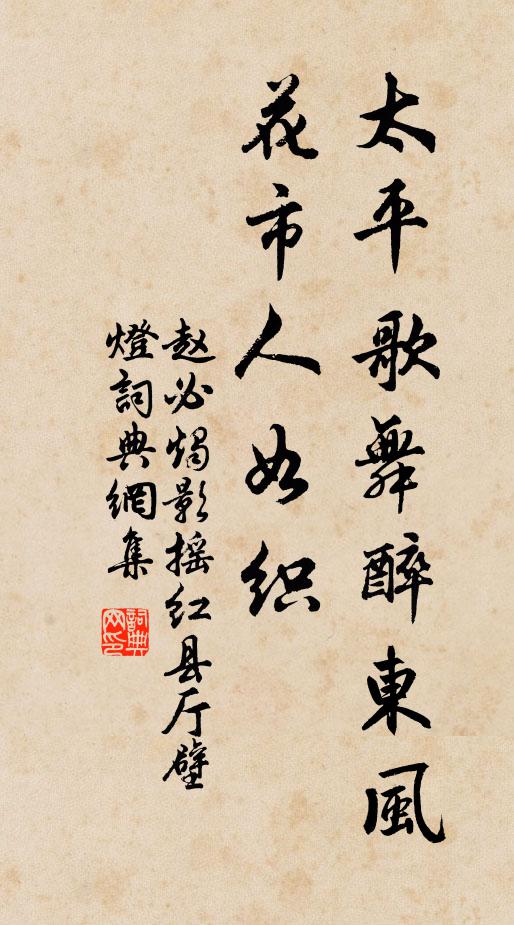 太平歌舞醉東風
花市人如织
赵必烛影摇红县厅壁
燈詞典網集
詞典网印